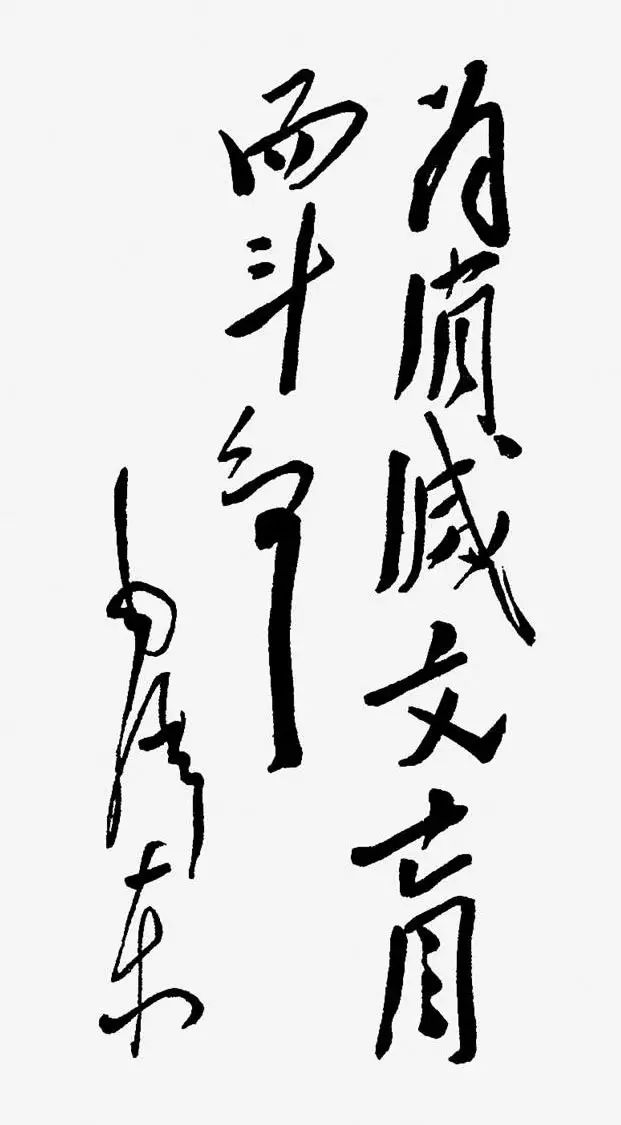 为消灭文盲
而斗争
毛泽东